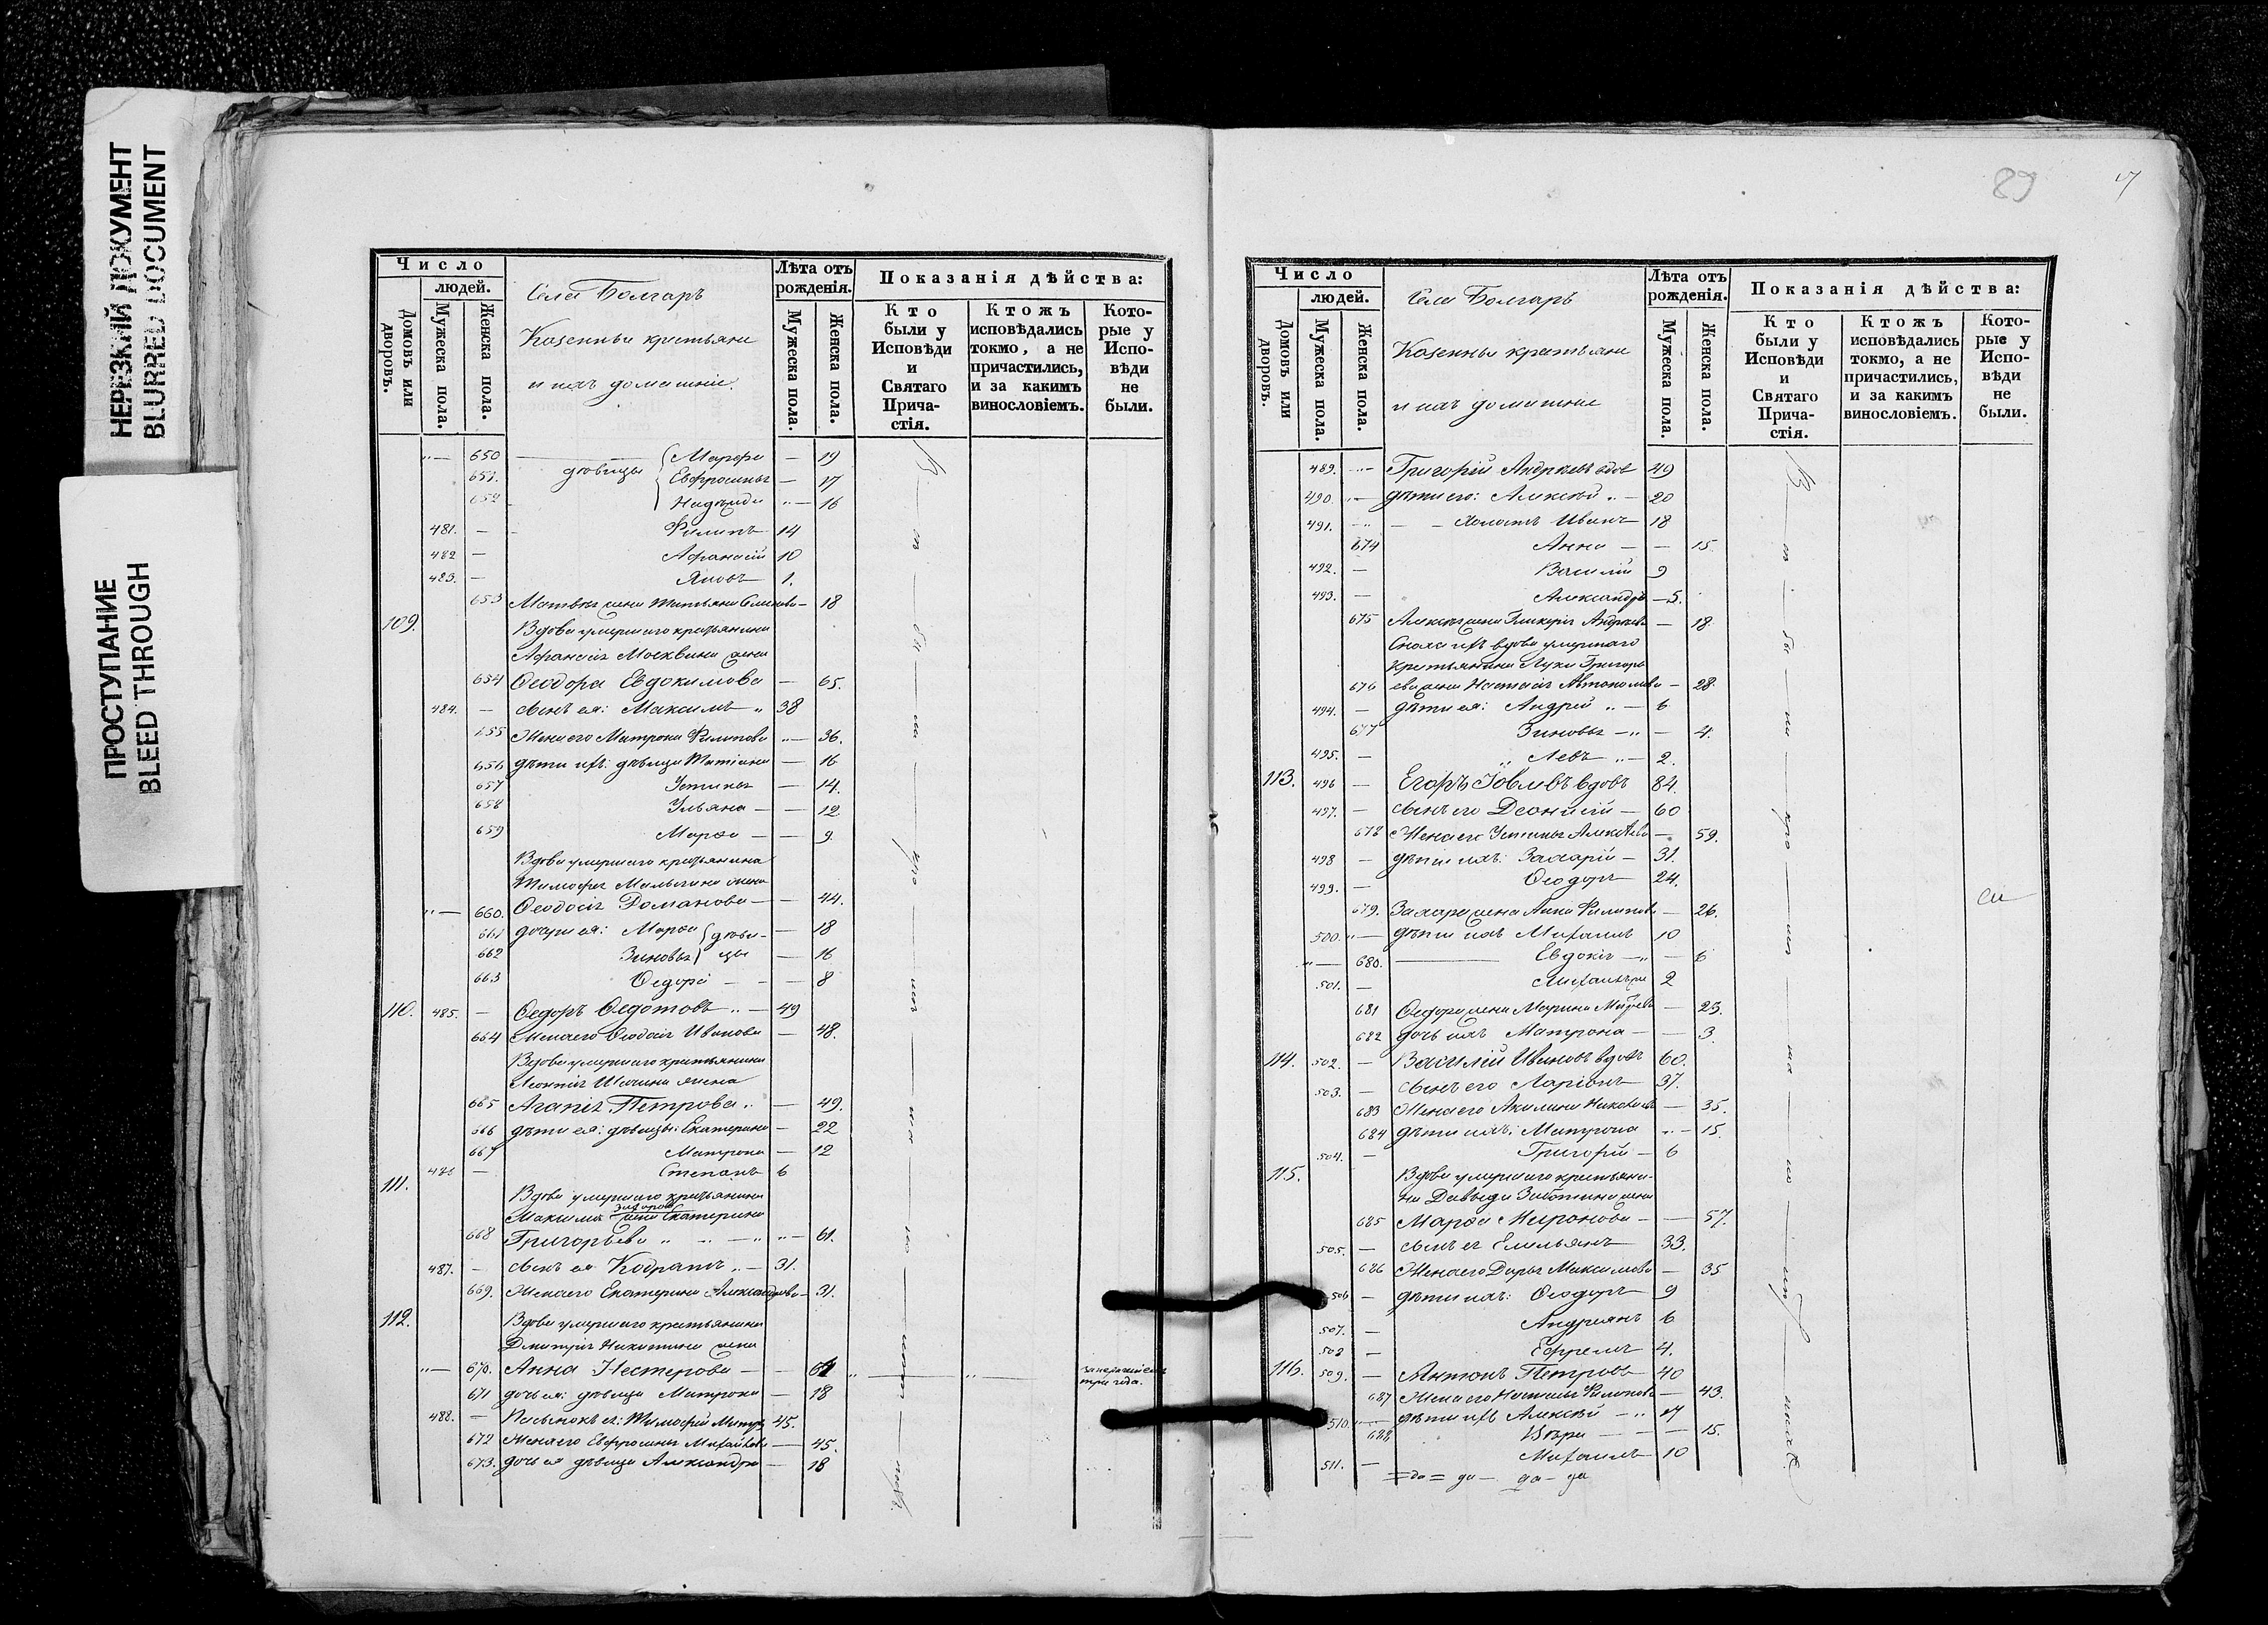 НЕРЕЗКИЙ ДОКУМЕНТ
BLURRED DOCUMENT
ПРОСТУПАНИЕ
BLEED THROUGH
Число
людей.
Домовъ или дворовъ.
Мужеска пола.
Женска пола.
Села Болгаръ
Казенныи крестьяне
и ихъ домашніе.
Лѣта отъ рожденія.
Мужеска пола.
Женска пола.
Показанія дѣйства:
Кто были у Исповѣди и Святаго Прича-стія.
Ктожъ исповѣдались токмо, а не причастились, и за какимъ винословіемъ.
Кото-рые у Испо-вѣди не были.
650 Марфа — 19
651. дѣвицы Евфросинья — 17
652 Надежда — 16
481. — Филипъ 14
482 — Афанасій 10
483. — Яковъ 1.
653 Матвѣя жена Татьяна — 18
109. Вдова умершаго крестьянина
Афанасія Москвина жена
654 Ѳеодора Евдокимова — 65.
484. — сынъ ея: Максимъ „ 38
655 Жена его Матрона Филипова — 36.
656 дѣти ихъ: дѣвица Татіана — 16
657 Устинья — 14.
658 Ульяна — 12
659 Марфа — 9.
Вдова умершаго крестьянина
Тимофея жена
660. Ѳеодосія Романова — 44.
661 дочери ея: Марфа дѣви- — 18
662 Зиновья цы — 16
663 Ѳедора — 8
110. 485. — Ѳедоръ Ѳедотовъ „ — 49
664 Жена его Ѳеодосія Иванова — 48.
Вдова умершаго крестьянина
Леонтія жена
665 Агапія Петрова „ — 49.
666 дѣти ея: дѣвицы: Екатерина — 22
667 Матрона — 12
486 — Степанъ 6
111. Вдова умершаго крестьянина
Максима жена Екатерина
668 Григорьева „ — 61.
487. — сынъ ея Кодратъ „ — 31.
669. Жена его Екатерина Александрова — 31.
112. Вдова умершаго крестьянина
Дмитрія Никитина жена
670. Анна Нестерова — 61
три года.
671 дочь ея: дѣвица Матрона — 18
488. — Пасынокъ ея: Тимофей 45.
672 Жена его Евфросинья Михайлова — 45.
673. дочь ея дѣвица Александра — 18
89
17
Число
людей.
Домовъ или дворовъ.
Мужеска пола.
Женска пола.
Села Болгаръ
Казенныи крестьяне
и ихъ домашніе
Лѣта отъ рожденія.
Мужеска пола.
Женска пола.
Показанія дѣйства:
Кто были у Исповѣди и Святаго Прича-стія.
Ктожъ исповѣдались токмо, а не причастились, и за какимъ винословіемъ.
Кото-рые у Испо-вѣди не были.
489. — Григорій Андреевъ вдов 49
490. — дѣти его: Алексѣй „ — 20
491. — Холостъ Иванъ — 18
674 Анна — 15.
492. — Василій 9
493. — Александръ — 5.
675 Алексѣя жена Гликерія Андреева — 18.
Сноха ихъ вдова умершаго
крестьянина Луки Григорь
676 ева жена Настасія Автономова — 28.
494. — дѣти ея: Андрей „ — 6
677 Зиновья — „ — 4.
495. — Левъ „ — 2.
113. 496 — Егоръ Іовлевъ вдовъ 84.
497. — сынъ его Деонисій — 60
678 Жена его Устинья Алексѣева — 59.
498 — дѣти ихъ: Захарій — 31.
499. — Ѳеодоръ 24.
679. Захара жена Анна Филипова — 26.
500. — дѣти ихъ Михаилъ 10
680. Евдокія — „ — 6
501. — Михаилъ 2
681 Ѳедора жена Марина — 23.
682 дочь ихъ Матрона — 3.
114. 502. — Василій Ивановъ вдовъ 60.
503. — сынъ его Ларіонъ 37.
683 Жена его Акилина — 35.
684 дѣти ихъ: Матрона „ — 15.
504. — Григорій — 6
115. Вдова умершаго крестьяни-
на Давыда Заботина жена
685 Марфа Миронова — 57.
505. — сынъ ея Емельянъ 33.
686 Жена его Дарья Максимова — 35
506 — дѣти ихъ: Ѳеодоръ 9
507. — Андреянъ 6
508 — Ефремъ 4.
116. 509. — Антонъ Петровъ 40
687 Жена его Наталья Филипова — 43.
510. — дѣти ихъ Алексѣй — „ 17
688 Вѣра — 15.
511. — Михаилъ 10